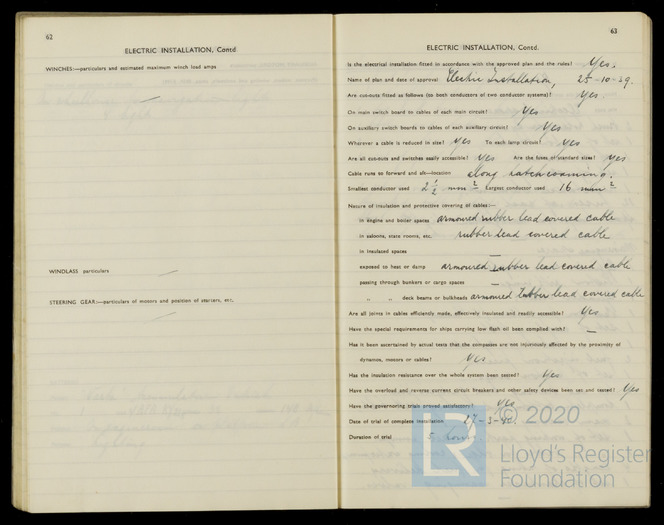 62
ELECTRIC INSTALLATION, Contd
WINCHES:—particulars and estimated maximum winch load amps
—
WINDLASS particulars —
STEERING GEAR:—particulars of motors and position of starters, etc.
—
63
ELECTRIC INSTALLATION, Contd.
Is the electrical installation fitted in accordance with the approved plan and the rules? Yes.
Name of plan and date of approval Electric Installation, 25-10-29.
Are cut-outs fitted as follows (to both conductors of two conductor systems)? Yes
On main switch board to cables of each main circuit? Yes
On auxiliary switch boards to cables of each auxiliary circuit? Yes
Wherever a cable is reduced in size? Yes To each lamp circuit? Yes
Are all cut-outs and switches easily accessible? Yes Are the fuses of standard sizes? Yes
Cable runs so forward and aft—location along hatchcoaming.
Smallest conductor used 2 1/2 mm 2 Largest conductor used 16 mm 2
Nature of insulation and protective covering of cables:—
in engine and boiler spaces armoured rubber lead covered cable
in saloons, state rooms, etc. rubber lead covered cable
in insulated spaces —
exposed to heat or damp armoured rubber lead covered cable
passing through bunkers or cargo spaces —
" " deck beams or bulkheads armoured rubber lead covered cable
Are all joints in cables efficiently made, effectively insulated and readily accessible? Yes
Have the special requirements for ships carrying low flash oil been complied with? —
Has it been ascertained by actual tests that the compasses are not injuriously affected by the proximity of
dynamos, motors or cables? Yes
Has the insulation resistance over the whole system been tested? Yes
Have the overload and reverse current circuit breakers and other safety devices been set and tested? Yes
Have the governoring trials proved satisfactory? Yes
Date of trial of complete installation 17-3-
Duration of trial 5 hours.
LR
© 2020
Lloyd's Register
Foundation